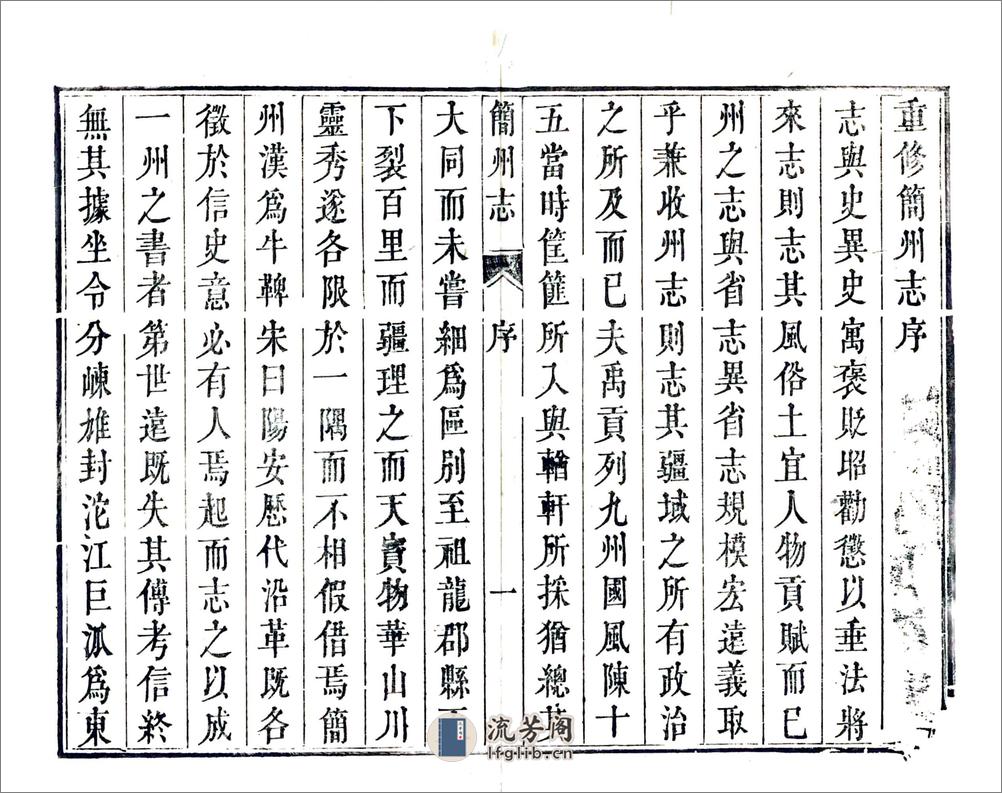 重修簡州志序
志與史異史寓褒貶昭勸懲以垂法將
來志則志其風俗土宜人物貢賦而已
州之志與省志異省志規模宏遠義取
乎兼收州志則志其疆域之所有政治
之所及而已夫禹貢列九州國風陳十
五當時筐篚所入與輶軒所採猶總其
簡州志 序 一
大同而未嘗細爲區別至祖龍郡縣
下裂百里而疆理之而天寶物華山川
靈秀遂各限於一隅而不相假借焉簡
州漢爲牛鞞宋曰陽安歷代沿革既各
徵於信史意必有人焉起而志之以成
一州之書者第世遠既失其傳考信終
無其據坐令分崠雄封沱江巨派爲東
流芳阁
lfglib.cn